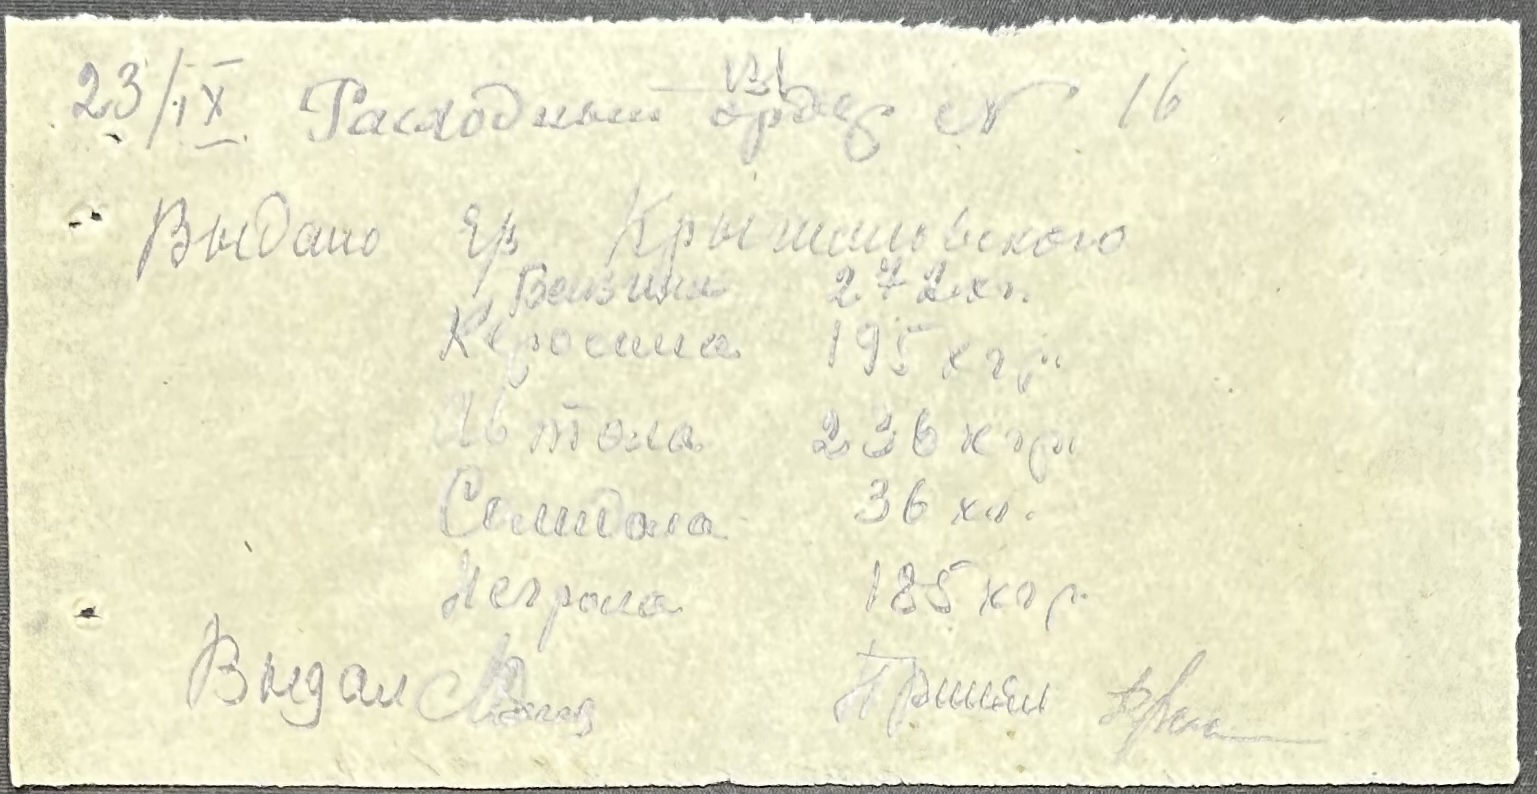 23/IX Расходный ордер № 16
Выдано бр Крыжановского
Бензина 272 кг.
Керосина 195 кгр.
Автола 236 кгр.
Солидола 36 кг.
Нигрола 185 кгр.
Выдал Принял